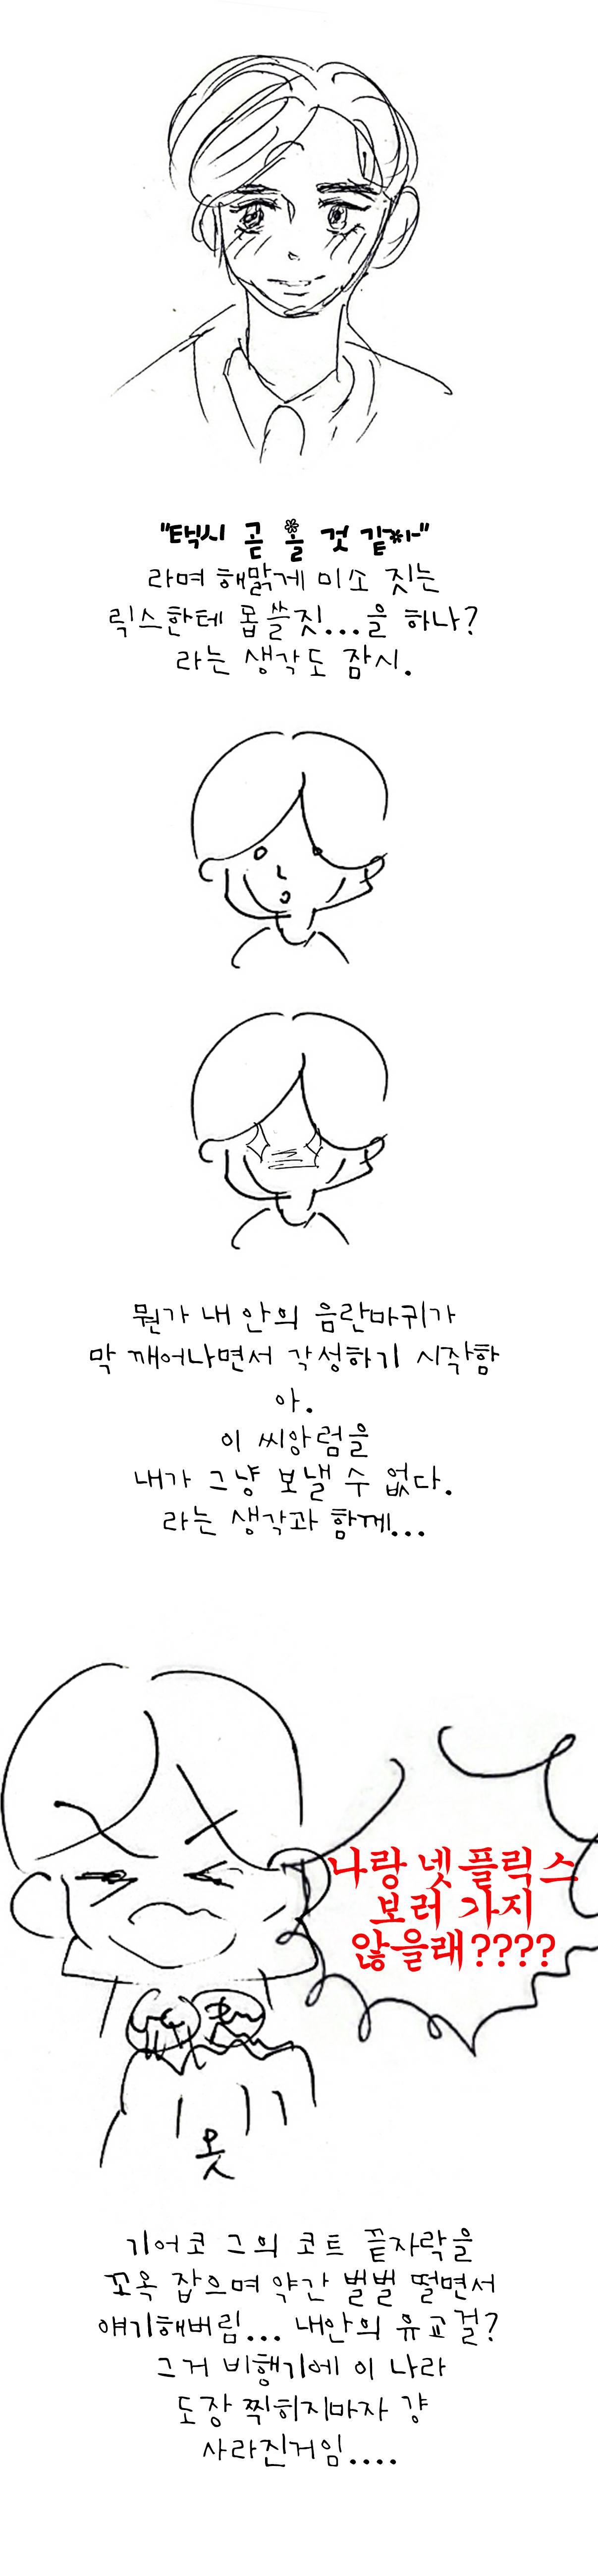 "택시 곧 올 것 같아"
라며 해맑게 미소 짓는
릭스한테 몹쓸짓...을 하나?
라는 생각도 잠시.
뭔가 내 안의 음란마귀가
막 깨어나면서 각성하기 시작함
아.
이 씨앙럼을
내가 그냥 보낼 수 없다.
라는 생각과 함께...
나랑 넷플릭스
보러 가지
않을래????
옷
기어코 그의 코트 끝자락을
꼬옥 잡으며 약간 벌벌 떨면서
얘기해버림... 내안의 유교걸?
그거 비행기에 이 나라
도장 찍히지마자 걍
사라진거임....